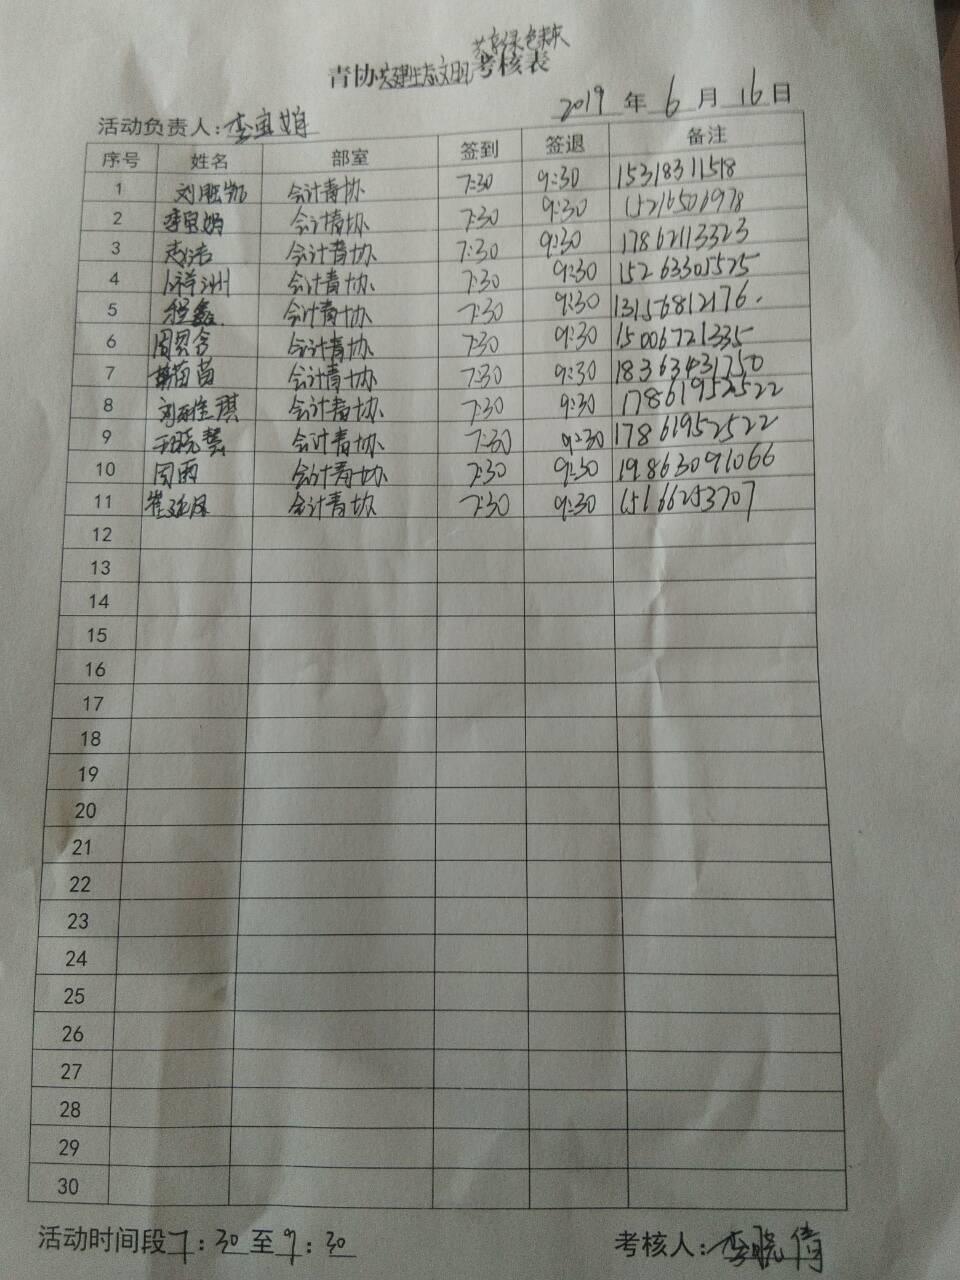 共享绿色未来
青协共建生态文明考核表
2019年6月16日
活动负责人:李宜娟
序号 姓名 部室 签到 签退 备注
1 会计青协 7:30 9:30 15318311518
2 会计青协 7:30 9:30 15216506978
3 会计青协 7:30 9:30 17862113323
4 会计青协 7:30 9:30 15263305525
5 程鑫 会计青协 7:30 9:30 13156812176.
6 会计青协 7:30 9:30 15006721335
7 韩苗苗 会计青协 7:30 9:30 18363431750
8 会计青协 7:30 9:30 17861952522
9 会计青协 7:30 9:30 17861952522
10 周雨 会计青协 7:30 9:30 19863091066
11 会计青协 7:30 9:30 15166253707
12
13
14
15
16
17
18
19
20
21
22
23
24
25
26
27
28
29
30
活动时间段7:30至9:30 考核人:李晓倩